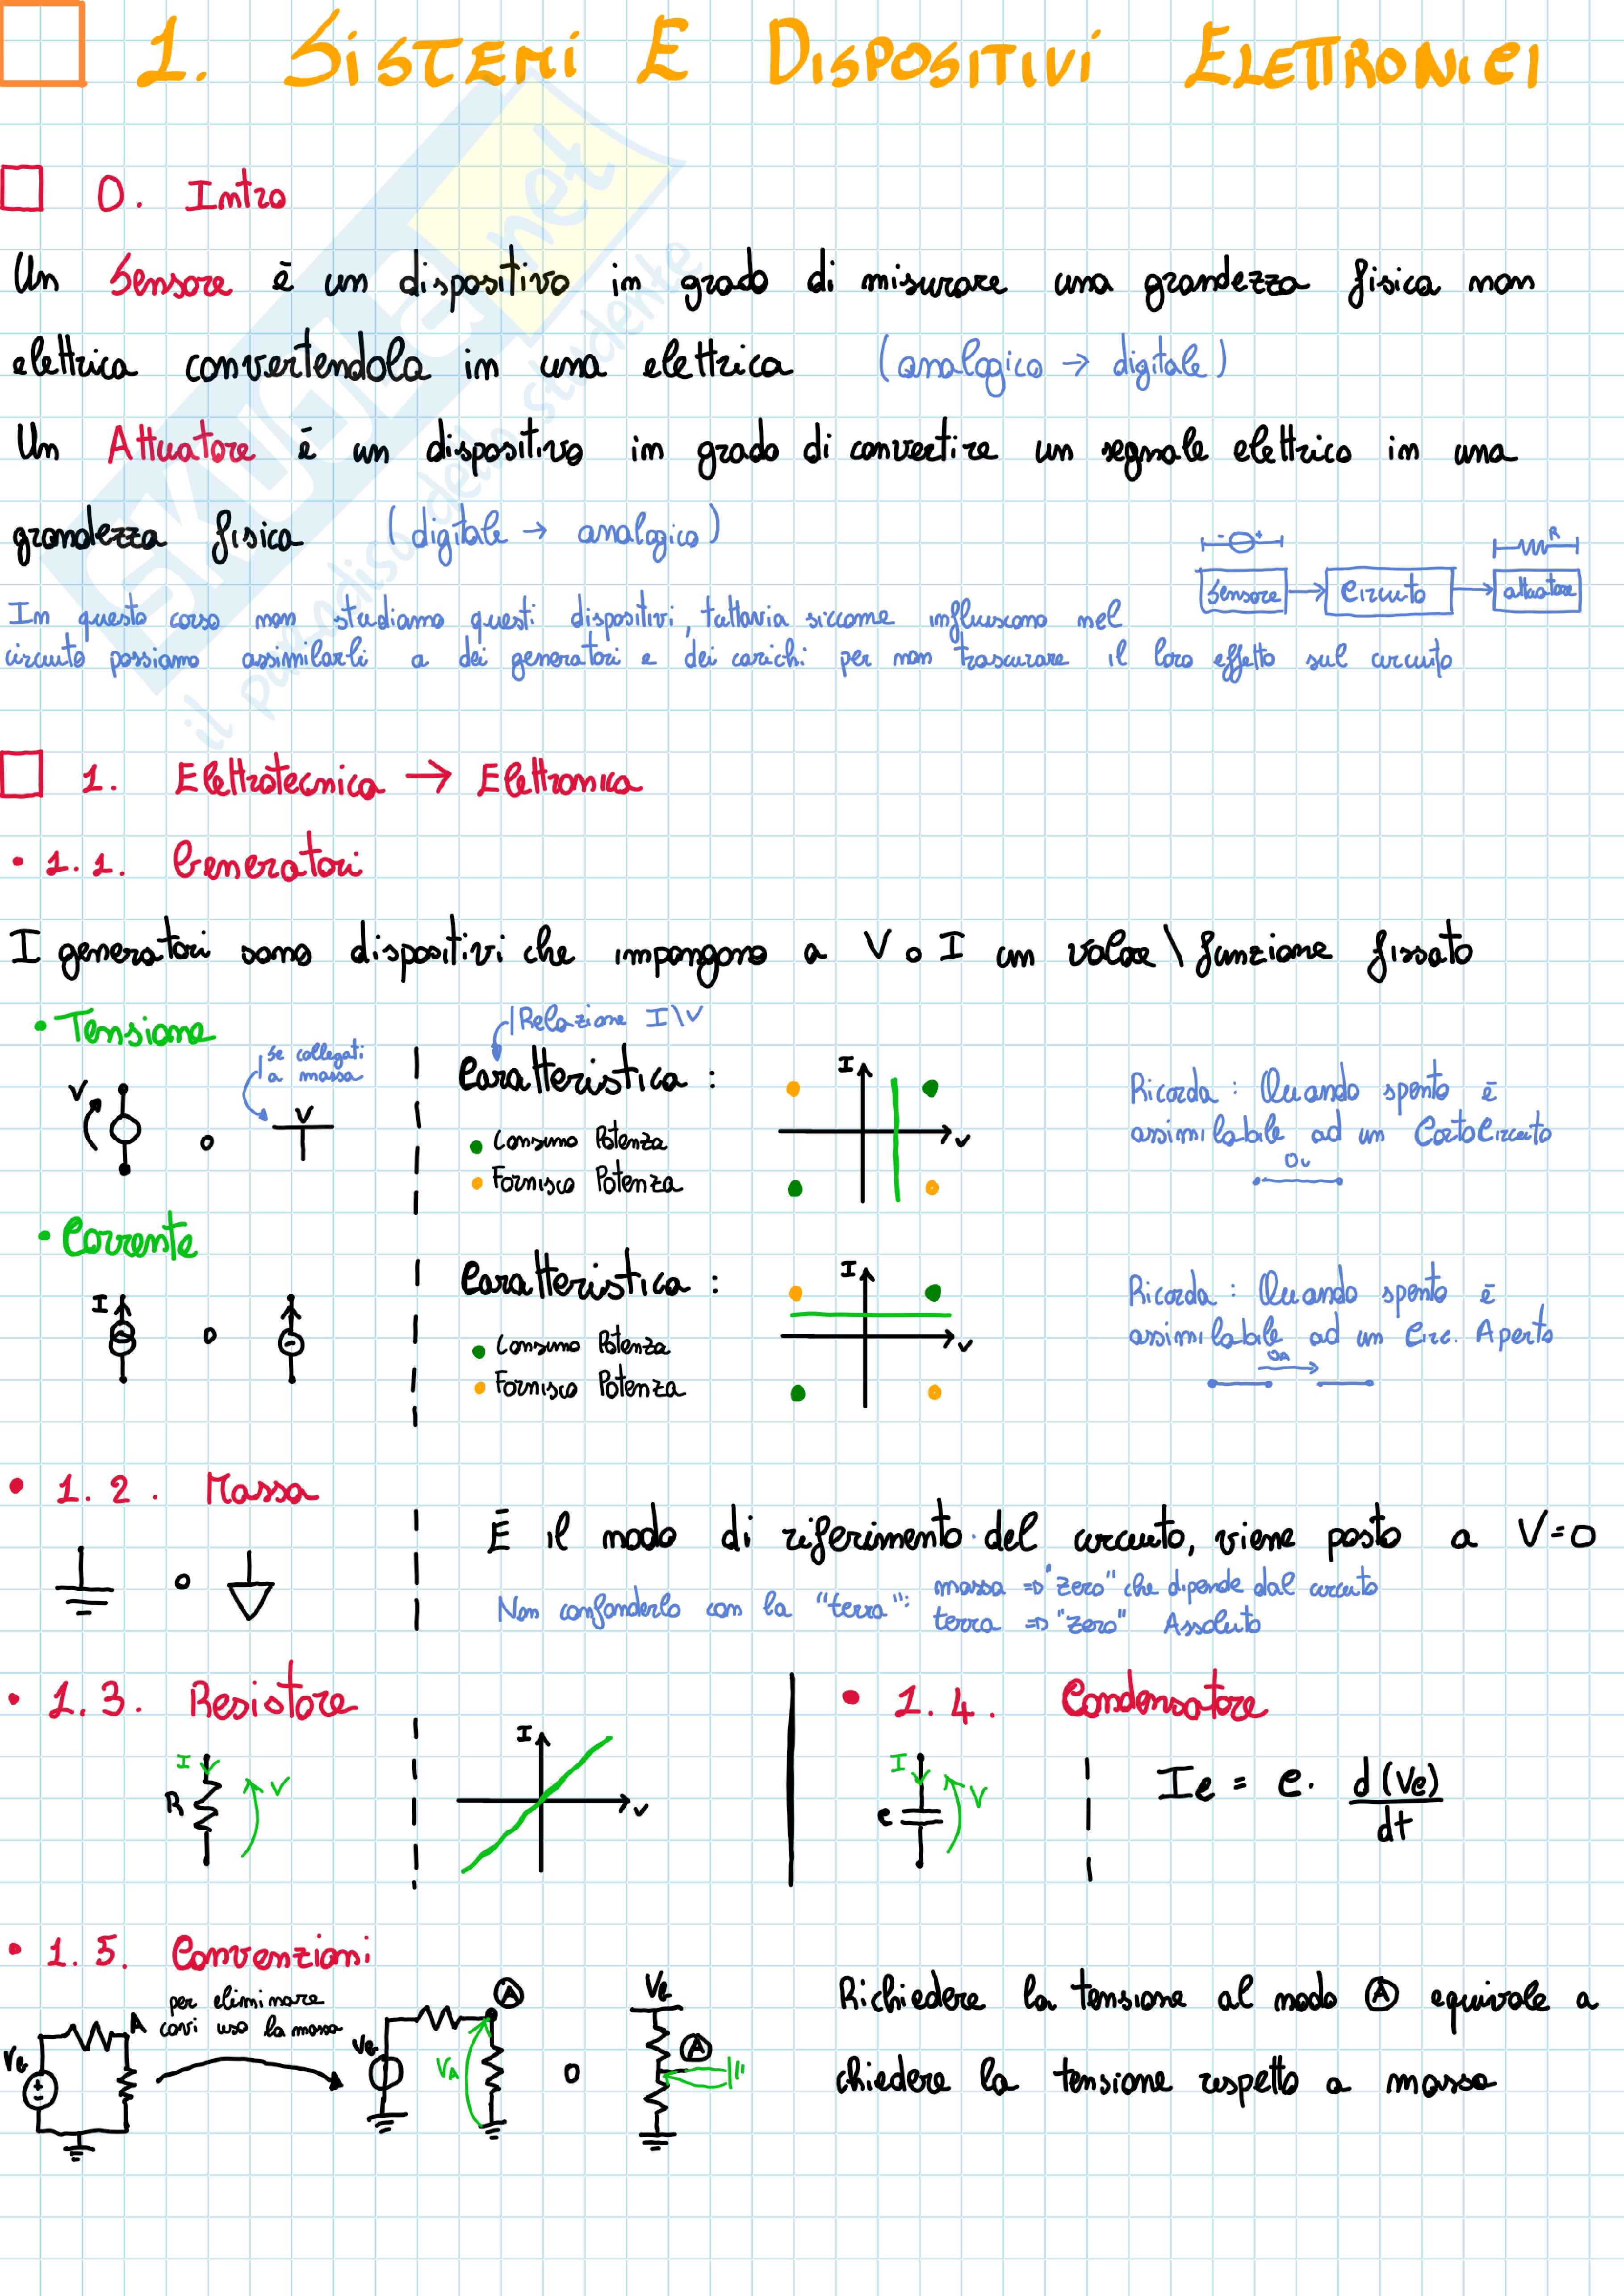 1. Sistemi E Dispositivi Elettronici
0. Intro
Un Sensore è un dispositivo in grado di misurare una grandezza fisica non
elettrica convertendola in una elettrica (analogico → digitale)
Un Attuatore è un dispositivo in grado di convertire un segnale elettrico in una
grandezza fisica (digitale → analogico)
- +
R
Sensore → Circuito → attuatore
In questo corso non studiamo questi dispositivi, tuttavia siccome influiscono nel
circuito possiamo assimilarli a dei generatori e dei carichi per non trascurare il loro effetto sul circuito
SKUOLA.net
il paradiso dello studente
1. Elettrotecnica → Elettronica
• 1.1. Generatori
I generatori sono dispositivi che impongono a V o I un valore \ funzione fissato
• Tensione
Relazione I\V
Se collegati
a massa
V o V
Caratteristica :
• Consumo Potenza
• Fornisco Potenza
I
V
Ricorda : Quando spento è
assimilabile ad un CortoCircuito
0v
• Corrente
I o
Caratteristica :
• Consumo Potenza
• Fornisco Potenza
I
V
Ricorda : Quando spento è
assimilabile ad un Circ. Aperto
0A
• 1.2. Massa
o
È il nodo di riferimento del circuito, viene posto a V=0
Non confonderlo con la "terra": massa => "zero" che dipende dal circuito
terra => "zero" Assoluto
• 1.3. Resistore
I
R
V
I
V
• 1.4. Condensatore
I
C
V
Ic = C · d(Vc)
dt
• 1.5. Convenzioni
per eliminare
cavi uso la massa
A
A
VA
o
A
Richiedere la tensione al nodo A equivale a
chiedere la tensione rispetto a massa